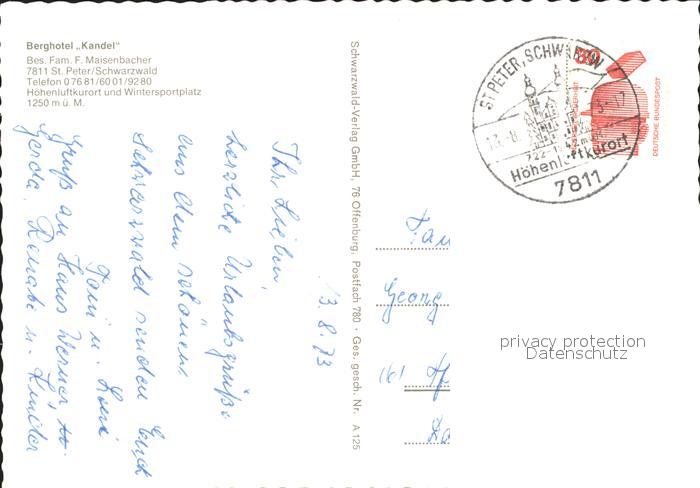 Berghotel „Kandel"
Bes. Fam. F. Maisenbacher
7811 St. Peter/Schwarzwald
Telefon 0 76 81/60 01/92 80
Höhenluftkurort und Wintersportplatz
1250 m ü. M.
Schwarzwald-Verlag GmbH, 76 Offenburg, Postfach 780 · Ges. gesch. Nr. A 125
ST PETER, SCHWARZW
722
Höhenluftkurort
7811
30
DEUTSCHE BUNDESPOST
13.8.73
Ihr Lieben,
herzliche Urlaubsgrüße
aus dem schönen
Schwarzwald senden Euch
Toni u.
Gruß an Hans Werner
Gerda, Renate u. Kinder
Fam
Georg
(61
privacy protection
Datenschutz